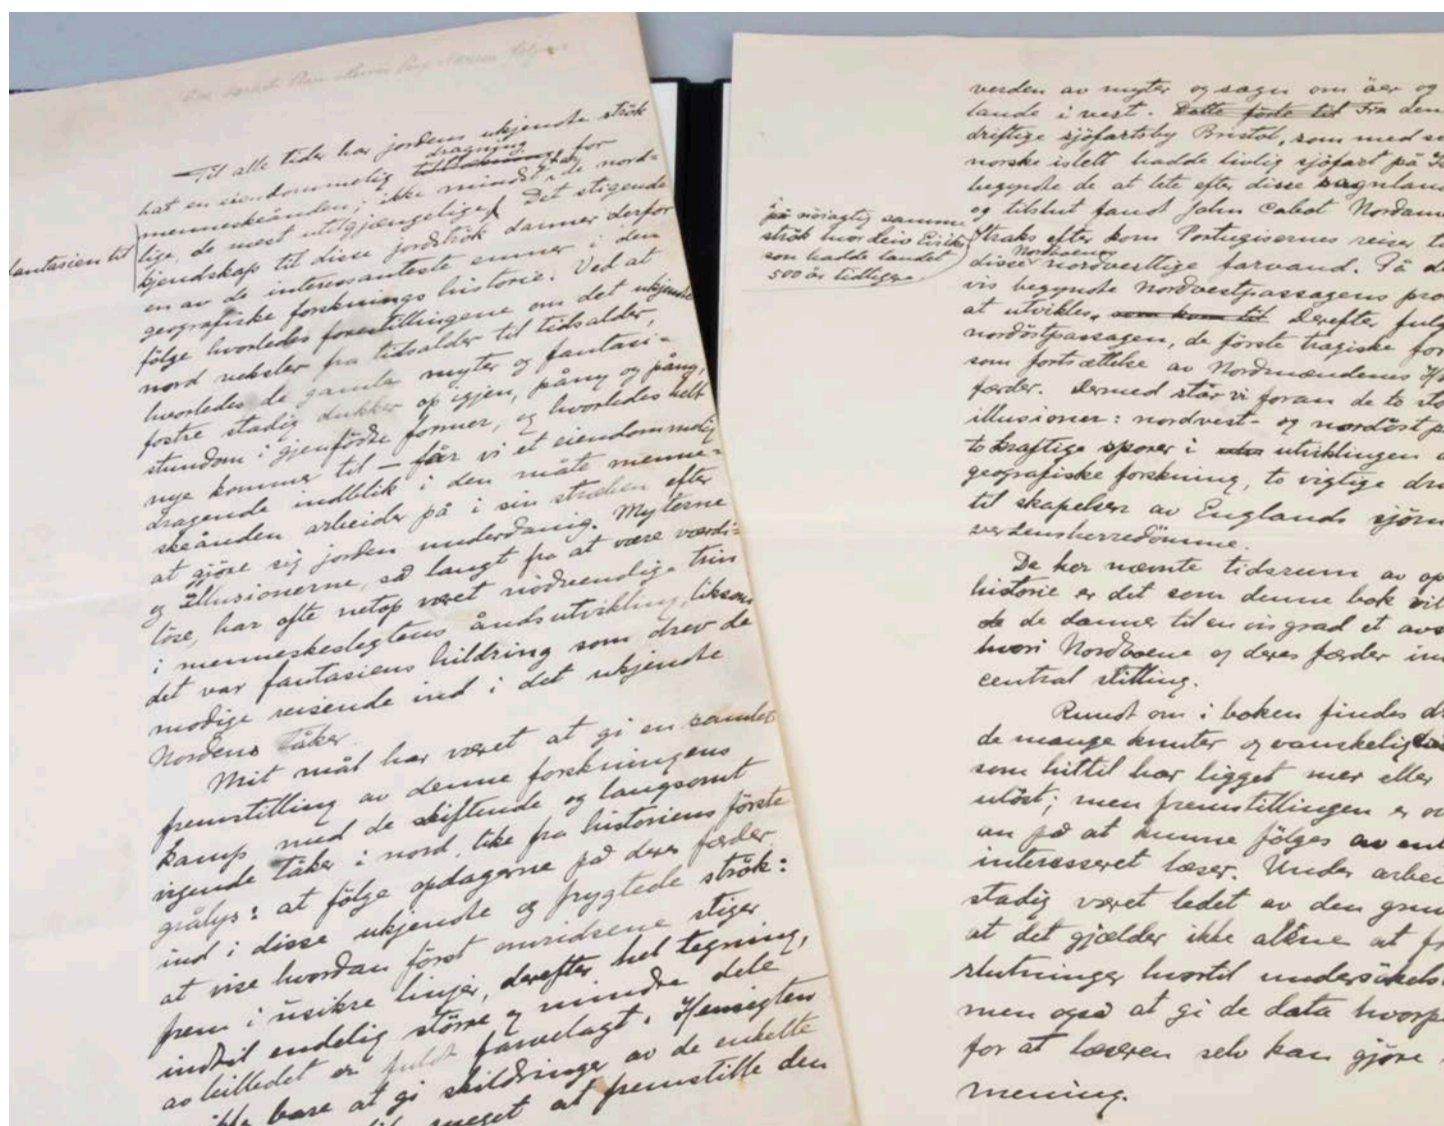 Til alle tider har jordens ukjendte strök
hat en eiendommelig dragning for
menneskeånden; ikke mindst de nord=
lige, de mest utilgjængelige. Det stigende
fantasien til
kjendskap til disse jordströk danner derfor
en av de interessanteste emner i den
geografiske forsknings historie. Ved at
følge hvorledes forestillingene om det ukjendte
nord veksler fra tidsalder til tidsalder,
hvorledes de gamle myter og fantasi=
fostre stadig dukker op igjen, påny og påny,
stundom i gjenfödte former, og hvorledes helt
nye kommer til — får vi et eiendommelig
dragende indblik i den måte menne=
skeånden arbeider på i sin stræben efter
at gjöre sig jorden underdanig. Myterne
og Illusionerne, så langt fra at være værdi=
löse, har ofte netop været nödvendige trin
i menneskeslegtens åndsutvikling, liksom
det var fantasiens hildring som drev de
modige reisende ind i det ukjendte
Nordens tåker.
Mit mål har været at gi en samlet
fremstilling av denne forskningens
kamp med de skiftende og langsomt
vigende tåker i nord, like fra historiens förste
grålys: at fölge opdagerne på deres færder
ind i disse ukjendte og frygtede strök:
at vise hvordan först omridsene stiger
frem i usikre linjer, derefter hel tegning,
indtil endelig större og mindre dele
av billedet er fuldt farvelagt. Hensigten
ikke bare at gi skildringer av de enkelte
meget at fremstille den
verden av myter og sagn om öer og
lande i vest. Dette förte til Fra den
driftige sjöfartsby Bristol, som med se
norske islett hadde livlig sjöfart på
begynte de at lete efter disse sagnland
og tilslut fandt John Cabot Nordam
i på nöiagtig samme
strök hvor Leiv Eiriks
som hadde landet
500 år tidligere
Straks efter kom Portugisernes reiser til
disse nordvestlige farvand. På de
vis begynte Nordvestpassagens pro
at utvikles, som kom til Derefter fulg
nordöstpassagen, de förste tragiske for
som fortsættelse av Nordmændenes
færder. Dermed står vi foran de to sto
illusioner: nordvest- og nordöst p
to kraftige sporer i utviklingen
geografiske forskning, to vigtige dri
til skapelsen av Englands sjöm
verdensherredömme.
De her nævnte tidsrum av op
historie er det som denne bok vil
de danner til en vis grad et avs
hvori Nordboene og deres færder in
central stilling.
Rundt om i boken findes dr
de mange knuter og vanskelig
som hittil har ligget mer eller
ulöst; men fremstillingen er
an på at kunne følges av en
interesseret læser. Under arbei
stadig været ledet av den grun
at det gjælder ikke alene at fr
slutninger hvortil undersökels
men også at gi de data hvorp
for at læseren selv kan gjöre
mening.